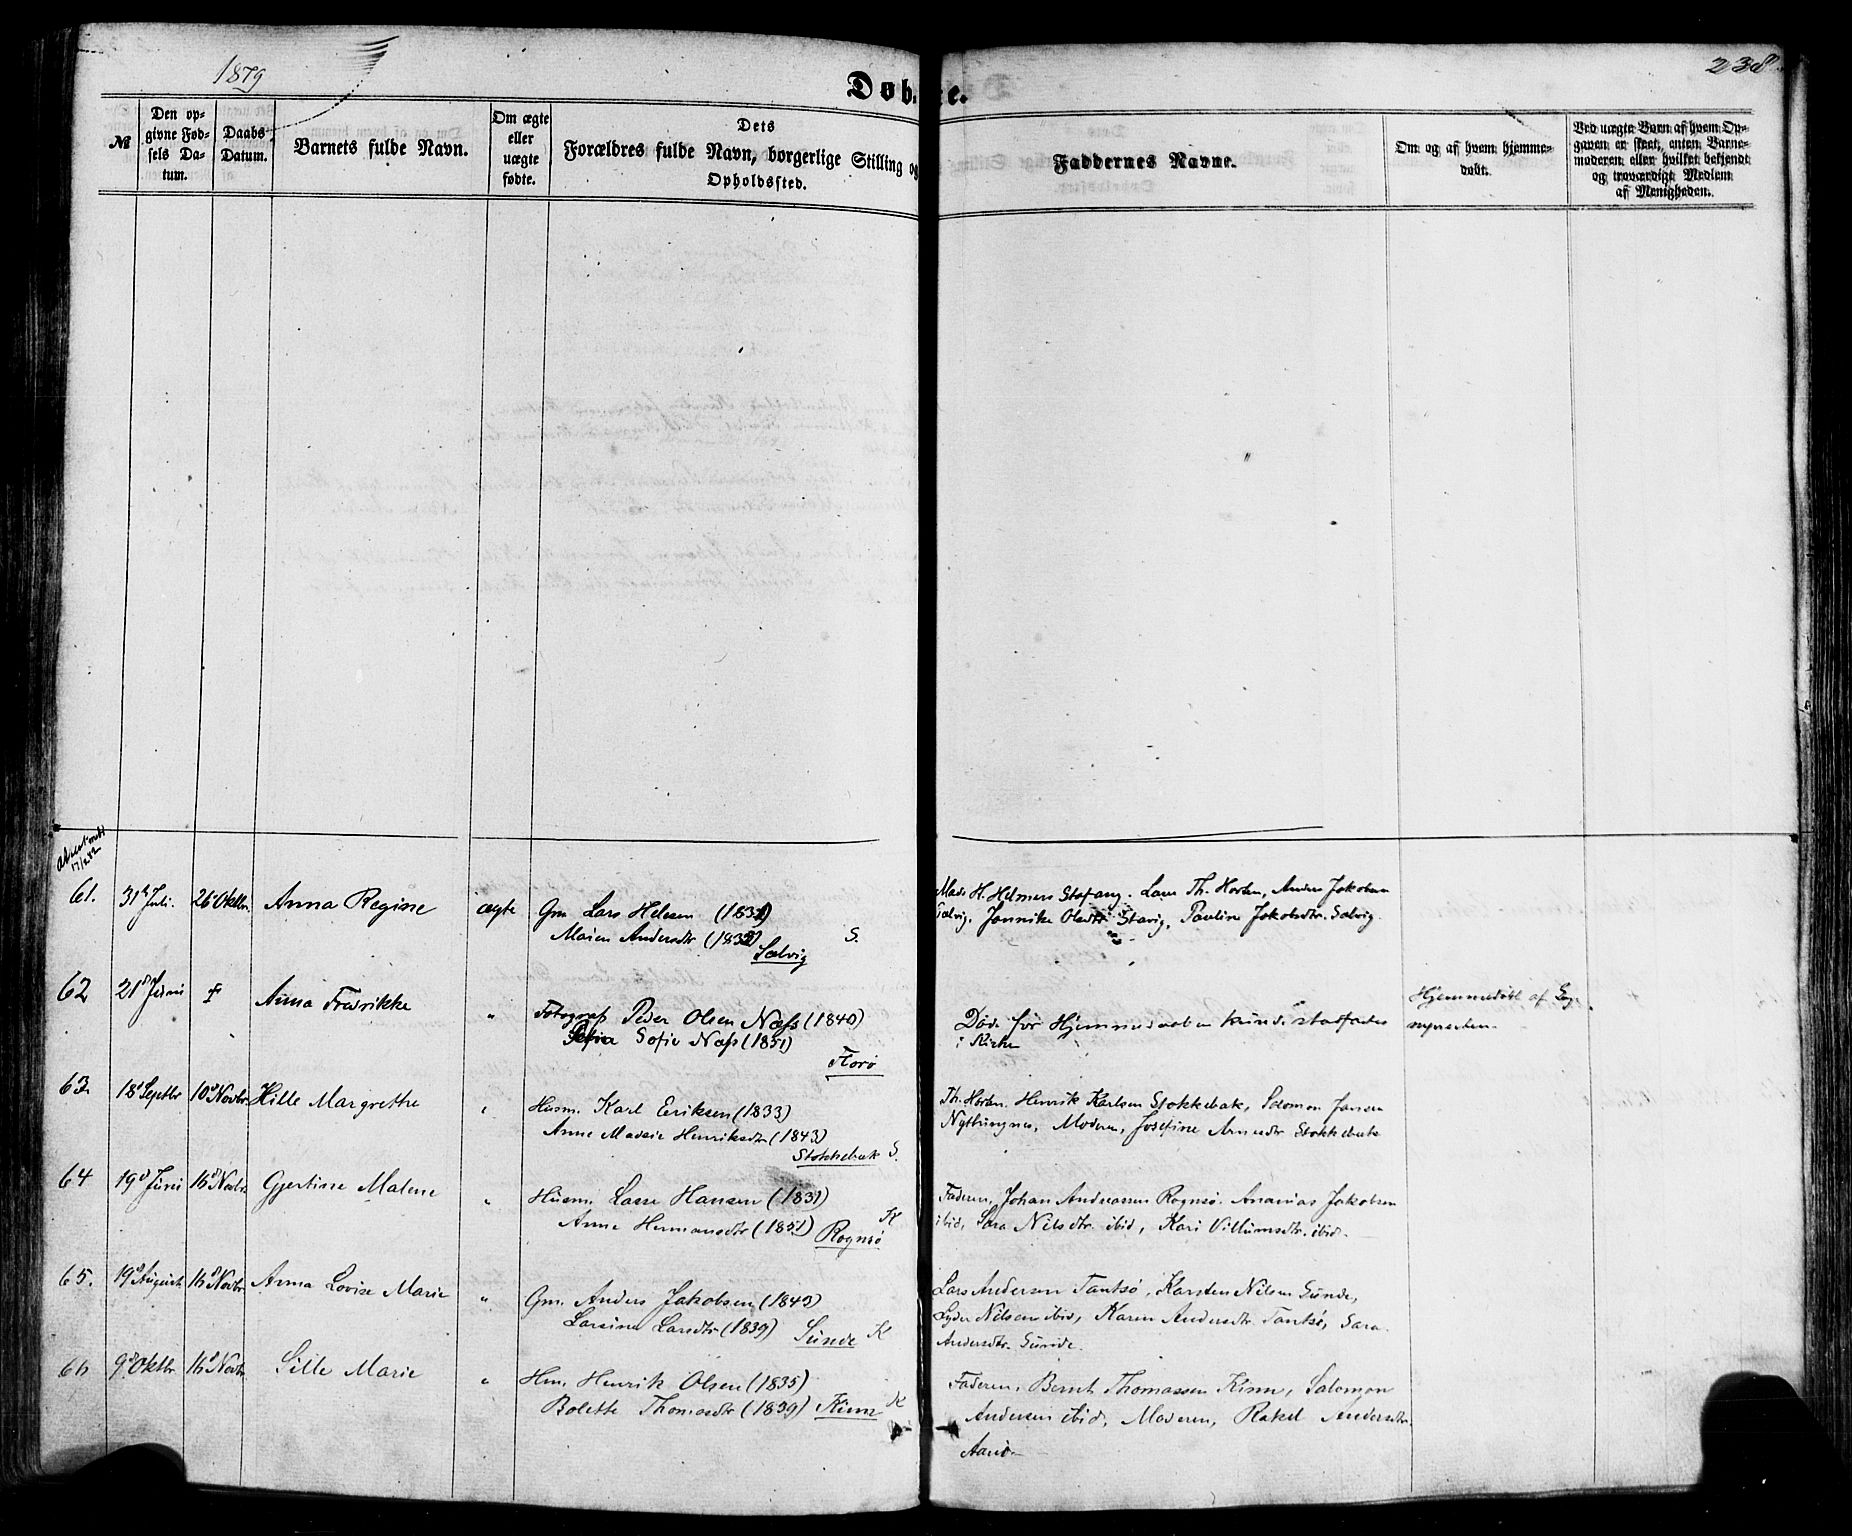 1879
Døbte.
238.
№
Den opgivne Fødsels Datum.
Daabs Datum.
Barnets fulde Navn.
Om ægte eller uægte fødte.
Dets Forældres fulde Navn, borgerlige Stilling og Opholdssted.
Faddernes Navne.
Om og af hvem hjemmedøbt.
Ved uægte Børn af hvem Opgaven er skeet, enten Barnemoderen eller hvilket bekjendt og troværdigt Medlem af Menigheden.
61. 31te Juli. 26 Oktbr. Anna Regine ægte Gm. Lars Helesen (1831)
Maren Andersdtr (1832) Sælvig S.
Mads H. Helmers Stafang. Lars Th. Horten, Anders Jakobsen
Sælvig, Jannike Olsdtr Stavig, Pauline Jakobsdtr. Sælvig.
62 21de Juni † Anna Fredrikke " Fotograf Peder Olsen Næss (1840)
Sofie Næss (1851)
Florø
Døde før Hjemmedaaben kunde stadfæstes
i Kirken
Hjemmedøbt af Sognepresten.
63. 18de Septbr 10de Novbr. Hille Margrethe " Husm. Karl Eriksen (1833)
Anne Henriksdtr (1843)
Stokkebæk S.
Th. Horten. Henrik Karlsen Stokkebæk, Salomon Jansen
Moderen, Josefine Arnesdtr Stokkebæk
64 19de Juni 16de Novbr. Gjertine Malene " Husm. Lasse Hansen (1831)
Anne Hermansdtr (1851) Rognsø K
Faderen, Johan Andreassen Rognsø. Ananias Jakobsen
ibid, Sara Nilsdtr. ibid, Kari Villumsdtr. ibid.
65. 19de August 16de Novbr. Anna Lovise Marie " Gm. Anders Jakobsen (1843)
Larsine Larsdtr (1839) Sunde K
Lars Andersen Tansø, Karsten Nilsen Sunde,
Lyder Nilsen ibid, Karen Andersdtr. Tansø, Sara
Andersdtr. Sunde.
66 9de Oktbr 16de Novbr. Sille Marie " Hm. Henrik Olsen (1835)
Bolette Thomasdtr (1839) Kinn K
Faderen, Bernt Thomassen Kinn, Salomon
Andersen ibid, Moderen, Rakel Andersdtr.